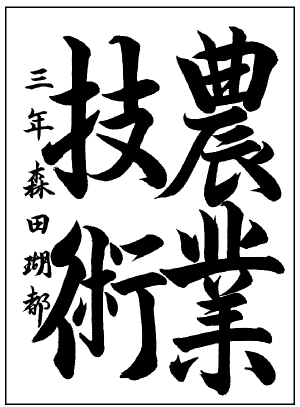 農業
技術
三年森田瑚都